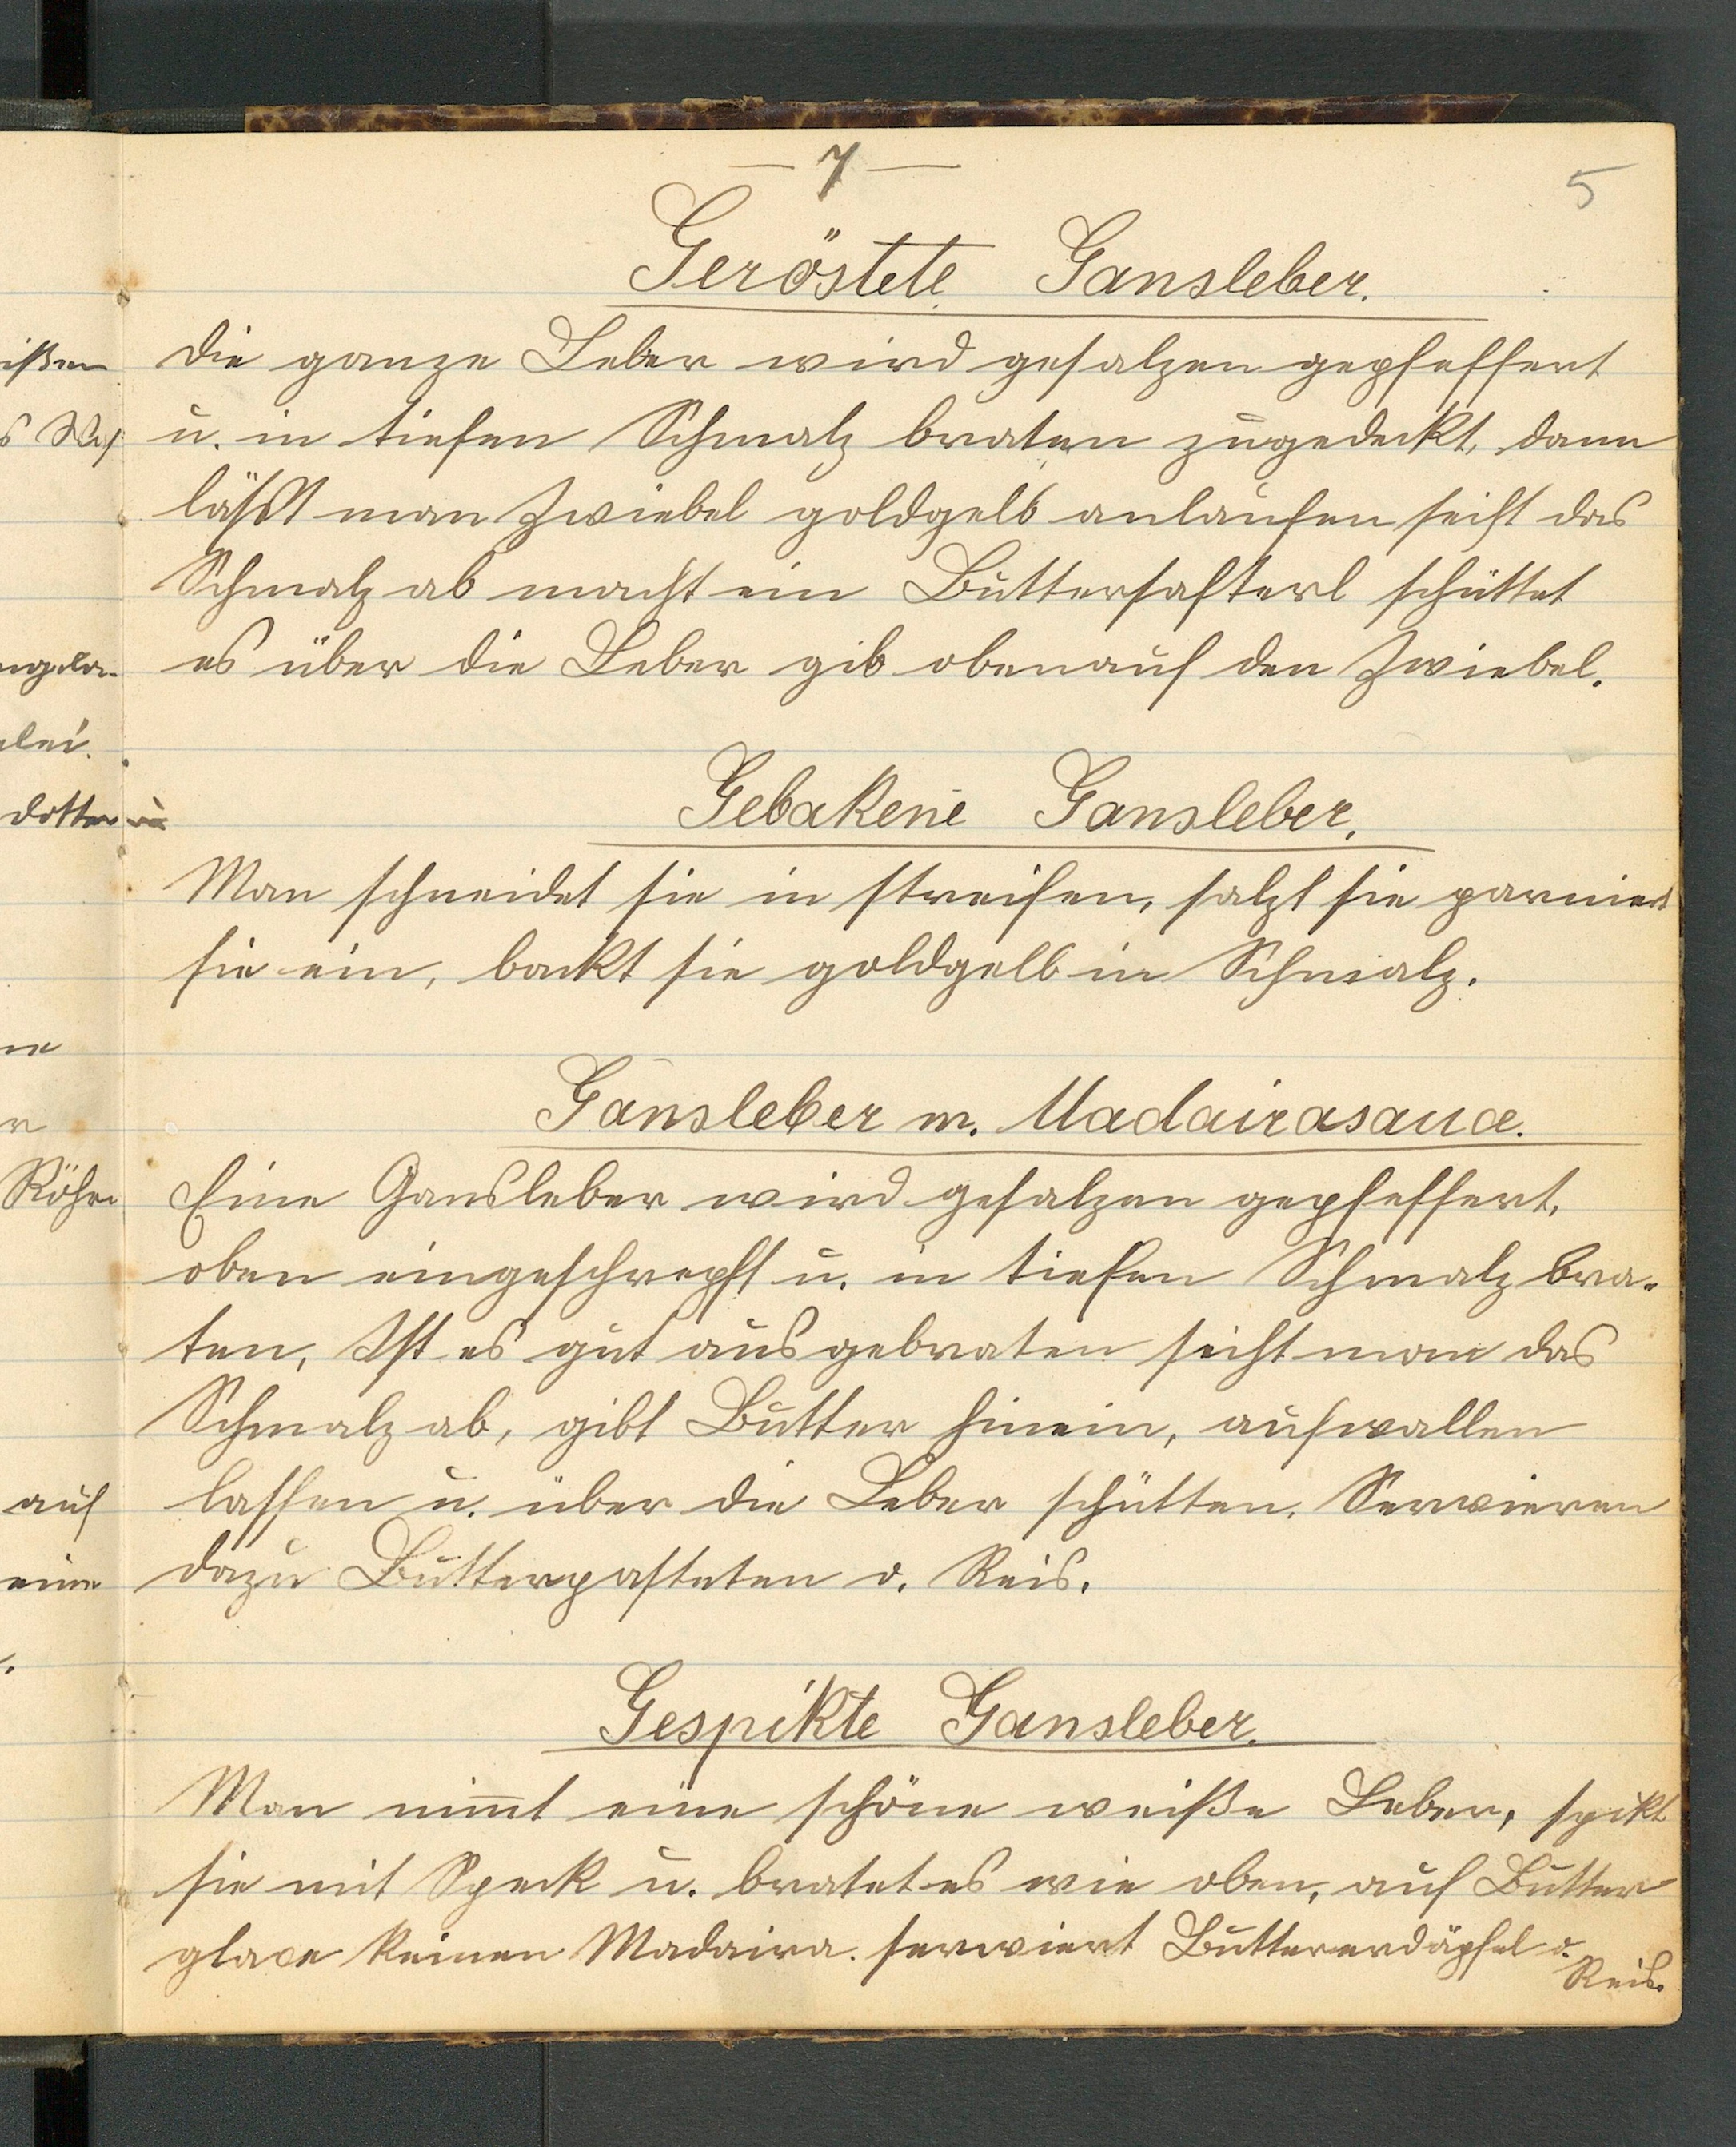 — 7 —
5
Geröstete Gansleber.
Die ganze Leber wird gesalzen gepfeffert
u. in tiefen Schmalz braten zugedeckt, dann
läßt man Zwiebel goldgelb anlaufen seiht das
Schmalz ab macht ein Buttersafterl schüttet
es über die Leber gib obenauf den Zwiebel.
Gebakene Gansleber.
Man schneidet sie in streifen, salzt sie parniert
sie ein, backt sie goldgelb in Schmalz.
Gansleber m. Madairasauce.
Eine Gansleber wird gesalzen gepfeffert,
oben eingeschrepft u. in tiefen Schmalz bra-
ten, Ist es gut ausgebraten seiht man das
Schmalz ab, gibt Butter hinein, aufwallen
lassen u. über die Leber schütten. Servieren
dazu Butterpasteten o. Reis.
Gespikte Gansleber.
Man nimmt eine schöne weiße Leber, spikt
sie mit Speck u. bratet es wie oben, auf Butter
glace keinen Madaira. serviert Buttererdäpfel o.
Reis.
ißen
dotter u
Röhre
auf
eine